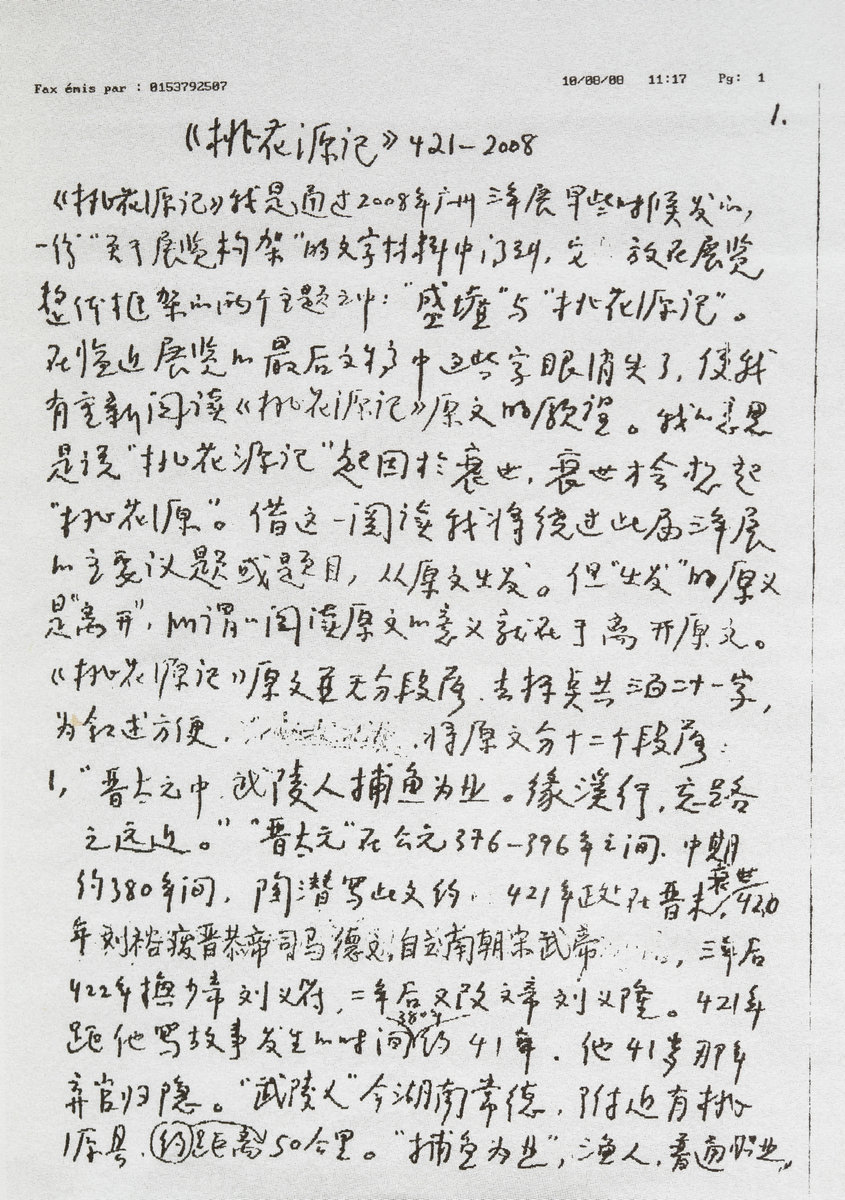 Fax émis par : 0153792507 10/08/08 11:17 Pg: 1
1.
《桃花源记》421—2008
《桃花源记》我是通过2008年广州三年展早些时候发的,
一份“关于展览构架”的文字材料中得到, 它 放在展览
整体框架的两个主题之中:“盛墟”与“桃花源记”。
在临近展览的最后文稿中这些字眼消失了, 使我
有重新阅读《桃花源记》原文的愿望。我的意思
是说“桃花源记”起因於衰世, 衰世才会想起
“桃花源”。借这一阅读我将绕过此届三年展
的主要议题或题目, 从原文出发。但“出发”的原义
是“离开”, 所谓的阅读原文的意义就在于离开原文。
《桃花源记》原文并无分段落, 去标点共三百二十一字,
为叙述方便, , 将原文分十二个段落:
1, “晋太元中, 武陵人捕鱼为业。缘溪行, 忘路
之远近。” “晋太元”在公元376—396年之间, 中期
约380年间, 陶潜写此文约 421年 在晋末衰世, 420
年刘裕废晋恭帝司马德文, 自立南朝宋武帝 , 三年后
422年 少帝刘义符, 二年后又改文帝刘义隆。421年
距他写故事发生的时间380年约41年, 他41岁那年
弃官归隐。“武陵人”今湖南常德, 附近有桃
源县, 约距离50公里。“捕鱼为业”, 渔人, 普通职业,